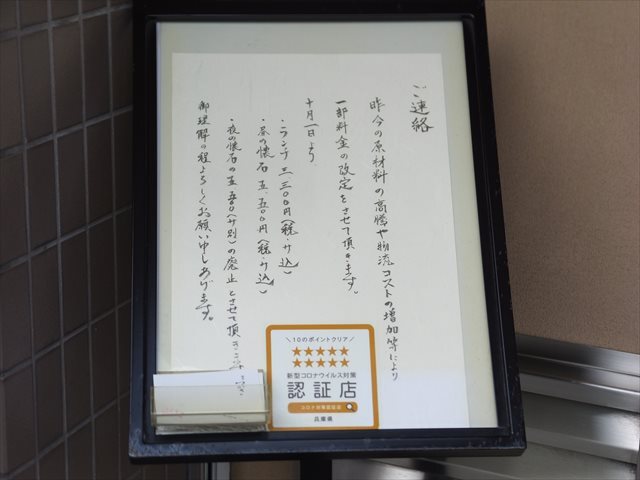 ご連絡
昨今の原材料の高騰や物流コストの増加等により
一部料金の改定をさせて頂きます。
十月一日より
・ランチ 三、三〇〇円(税・サ込)
・昼の懐石 五、五〇〇円(税・サ込)
・夜の懐石の五、五〇〇(サ別)の廃止とさせて頂き
御理解の程よろしくお願い申しあげます。
10のポイントクリア
新型コロナウイルス対策
認証店
コロナ対策認証店
兵庫県